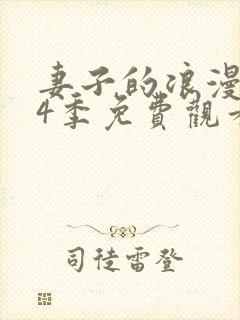 妻子的浪漫
4季免費觀
司徒雷登